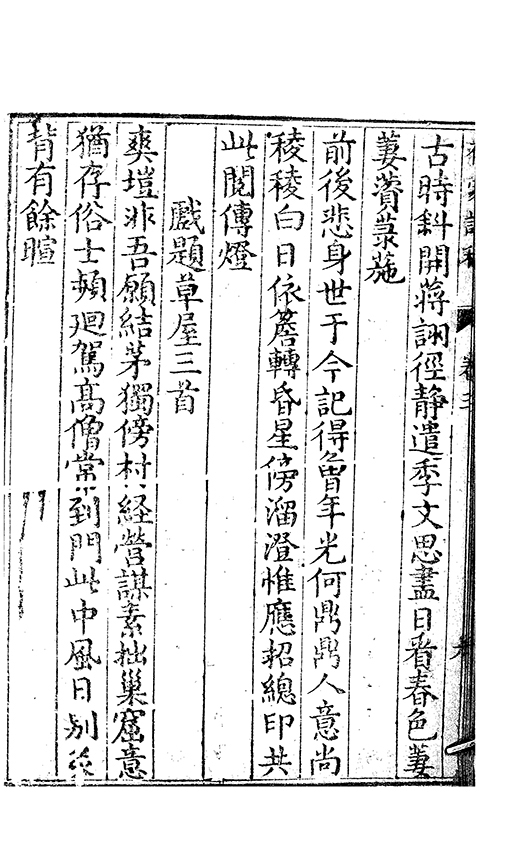 古時斜開蔣詡徑靜遣季文思盡日看春色萋
萋薋菉葹
前後悲身世于今記得曾年光何鼎鼎人意尚
稜稜白日依簷轉昏星傍溜澄惟應招總印共
此閱傳燈
戲題草屋三首
爽塏非吾願結茅獨傍村經營謀素拙巢窟意
猶存俗士頻廻駕高僧常到門此中風日別炙
背有餘暄